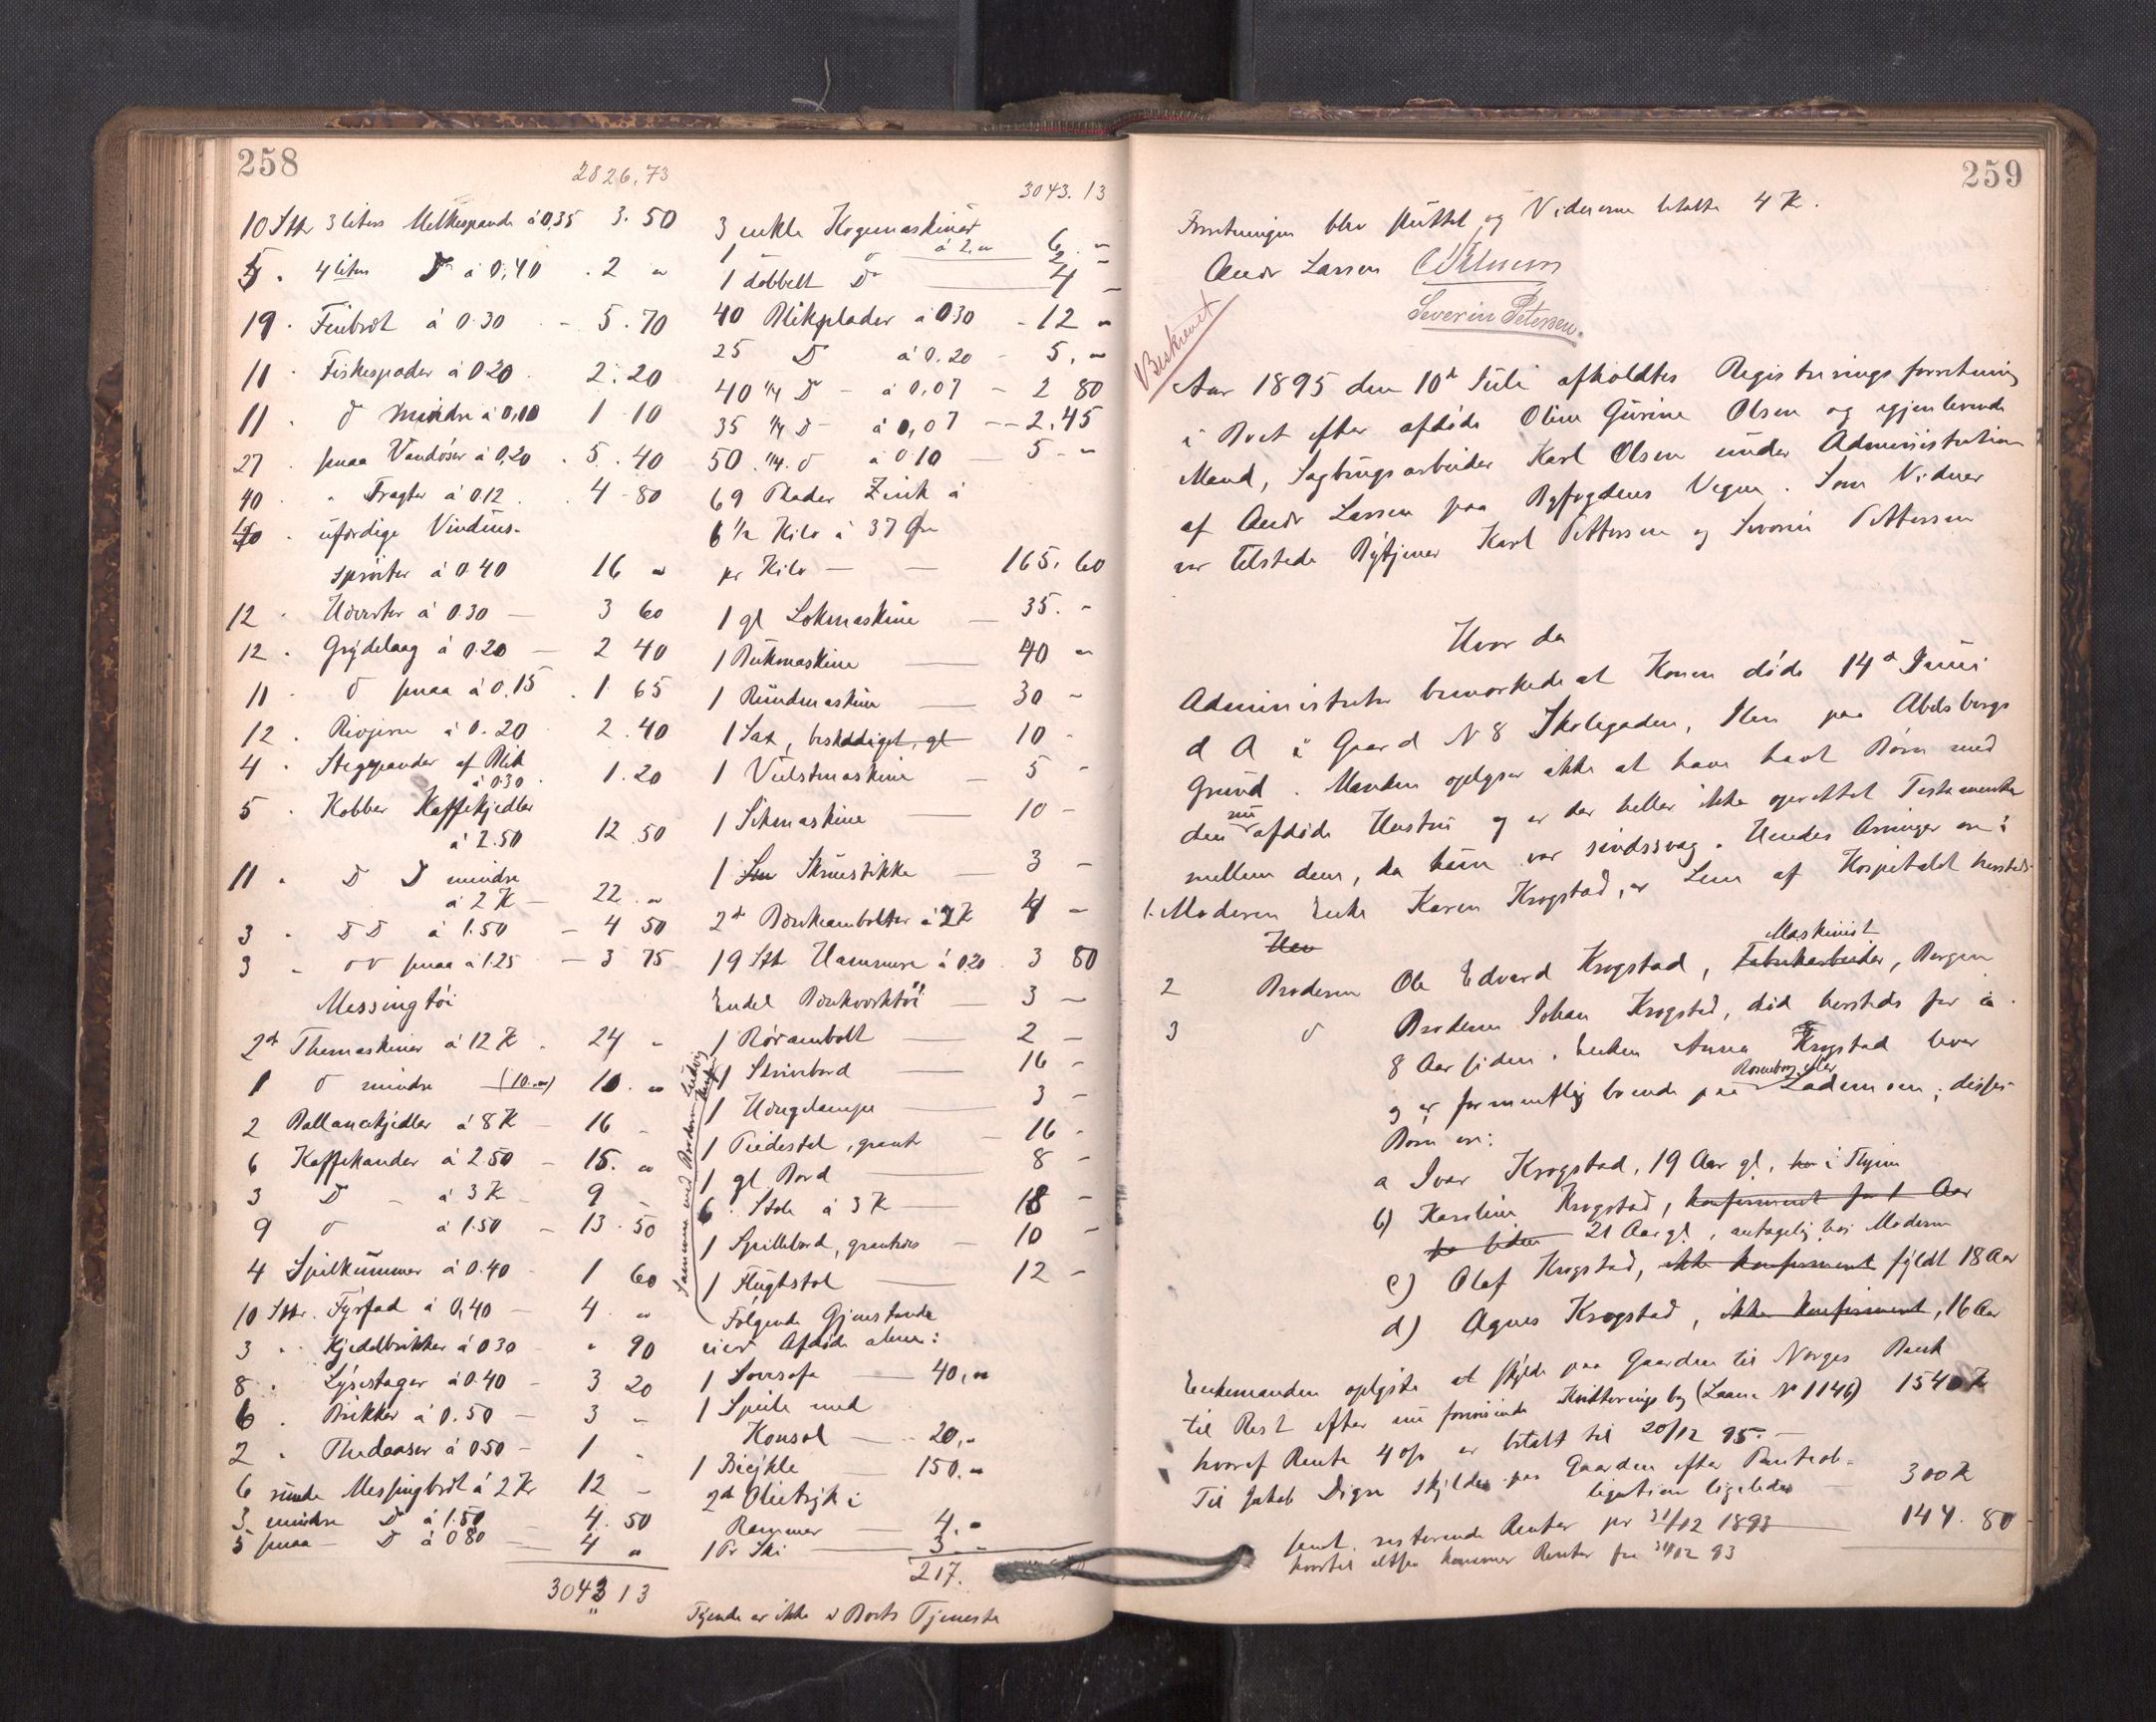 258
2826,73
10 Stkr 3 liters Melkespande á 0,35 3.50
5 " 4 liter D á 0,40 . 2 "
19 . Finbröt á 0.30 - 5.70
11 . Fiskespader á 0.20 2.20
11 . D mindre á 0,10 1 10
27 . smaa Vandöser á 0,20 . 5.40
40 . " Tragter á 0.12 . . 4-80
40 . ufærdige Vindus-
spröiter á 0.40 16 "
12 . á 0.30 — 3 60
12 . Grydelaag á 0.20 — 2 40
11 . D smaa á 0,15 . 1 65
12 . Rivjern á 0.20 2.40
4 . Stegepander af Blik
á 0.30 . 1.20
5 . Kobber Kaffekjedler
á 2.50 12.50
11 . D D mindre
á 2 K — 22 . "
3 . D D á 1.50 — 4 50
3 . D D smaa á 1.25 — 3 75
Messingtöi
2de Themaskiner á 12 K . 24 "
1 D mindre (10.") 10 . "
2 Ballancekjedler á 8 K — 16 -
6 Kaffekander á 2.50 — 15. "
3 D - á 3 K 9 -
9 D á 1.50 — 13.50
4 Spilkummer á 0.40 . 1 60
10 Stkr. Fyrfad á 0,40 — 4. "
3 " Kjedelbrikker á 0.30 " 90
8 . Lysestager á 0.40 — 3 20
6 . Brikker á 0.50 — 3 "
2 . Thedaaser á 0.50 — 1 "
6 runde Messingbröt á 2 Kr 12 -
3 mindre D á 1.50 — 4.50
5 smaa D á 0.80 — 4 "
3043 13
3043.13
3 enkle Kogemaskiner
á 2." 6 . "
1 D 2 . -
1 dobbelt D — 4 -
40 Blikplader á 0.30 - 12 "
25 D á 0.20 - 5. "
40 1/4 D — á 0,07 — 2 80
35 1/4 D — á 0,07 — 2.45
50 . 1/4 . D á 0.10 — 5 - "
69 Plader Zink á
6 1/2 Kilo á 37 Øre
pr Kilo — — 165.60
1 gl Lokmaskine — 35. -
1 Bukmaskine — 40 "
1 Rundmaskine — 30 -
1 Sax, beskadiget, gl 10 -
1 Vulstmaskine — 5 -
1 Sikmaskine — 10 -
1 Skruestikke — 3 -
2de Bænkeambolter á 2 K 4 -
19 Stk Hammere á 0.20 . 3 80
Endel Bænkverktöi — 3 -
1 Rörambolt — 2 -
1 Skrivebord — 16 -
1 Hængelampe — 3 -
1 Piedestal, granit — 16 -
1 gl. Bord — 8 -
6 . Stole á 3 K — 18 -
1 Spillebord, — 10 -
1 Flugtstol — 12 -
Sammen med Broderen Ludvig
Følgende Gjenstande
eier Afdøde alene:
1 Sovesofa — 40, "
1 Speile med
Konsol — 20, "
1 Bicykle — 150. "
2de Olietryk i
Rammer — 4. "
1 Pr Ski — 3. "
217.
Tyende er ikke i Boets Tjeneste
259
Forretningen blev sluttet og Vidnerne betalte 4 K.
Andr Larsen
Severin Petersen.
Beskrevet
Aar 1895 den 10de Juli afholdtes Registreringsforretning
i Boet efter afdøde Oline Gurine Olsen og gjenlevende
Mand, Sagbrugsarbeider Karl Olsen under Administration
af Andr Larsen paa Byfogdens Vegne. Som Vidner
var tilstede Bytjener Karl Pettersen og Severin Pettersen
Hvor da
Administrator bemærkede at Konen døde 14de Juni
d A i Gaard N 8 Skolegaden, Ilen paa Abelsborgs
Grund. Manden opligser ikke at have havt Børn med
den nu afdøde Hustru og er der heller ikke oprettet Testamente
mellem dem, da hun var sindssvag. Hendes Arvinger ere:
1. Moderen Enke Karen Krogstad, er Lem af Hospitalet hersteds
Hen
2 Broderen Ole Edvard Krogstad, Fabrikarbeider, Maskinist Bergen
3 D Broderen Johan Krogstad, død hersteds for ca.
8 Aar siden. Enken Anna Krogstad lever
og er formentlig boende paa Rosenborg eller Lademoen; disses
Børn ere:
a Ivar Krogstad, 19 Aar gl, i Thjem
b) Karoline Krogstad, konfirmeret for 1 Aar
siden 21 Aar gl, antagelig hos Moderen
c) Olaf Krogstad, ikke konfirmeret fyldt 18 Aar
d) Agnes Krogstad, ikke konfirmeret, 16 Aar
Enkemanden oplyste at skylde paa Gaarden til Norges Bank
til Rest efter nu forevisende Kvitteringsbog (Laan N 1146) 1540 K
hvoraf Rente 4 o/o er betalt til 20/12 95. —
Til Jakob Digre skyldes paa Gaarden efter Panteob-
ligation ligeledes — 300 K
samt resterende Renter pr 31/12 1893 — 144.80
hvortil altsaa kommer Renter fra 31/12 93